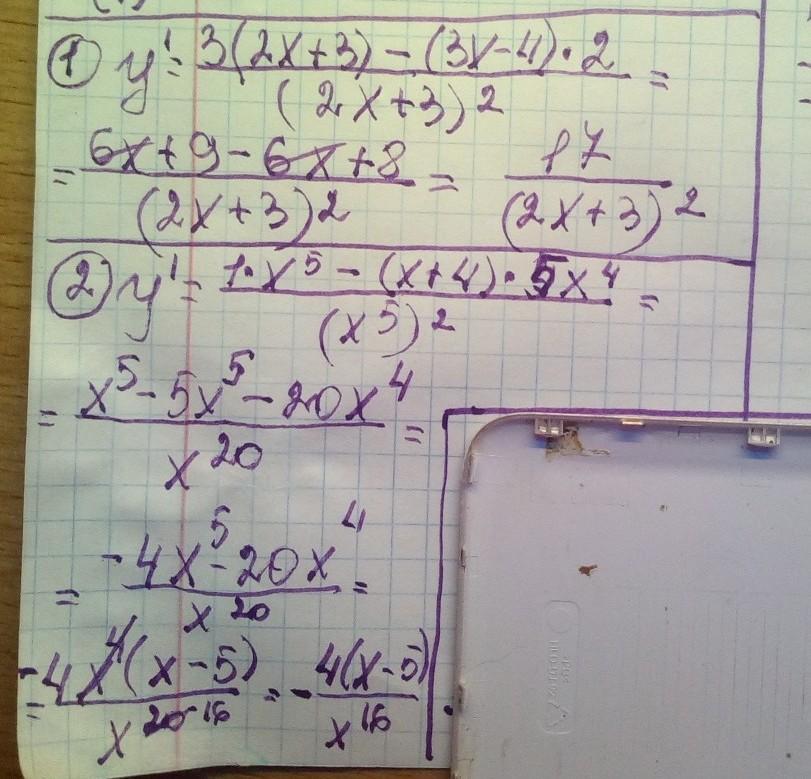 ① y' = 3(2x+3) - (3x-4)·2 / (2x+3)² =
= 6x+9-6x+8 / (2x+3)² = 17 / (2x+3)²
② y' = 1·x⁵ - (x+4)·5x⁴ / (x⁵)² =
= x⁵-5x⁵-20x⁴ / x²⁰ =
= -4x⁵-20x⁴ / x²⁰ =
= -4x⁴(x-5) / x²⁰⁻¹⁶ = - 4(x-5) / x¹⁶